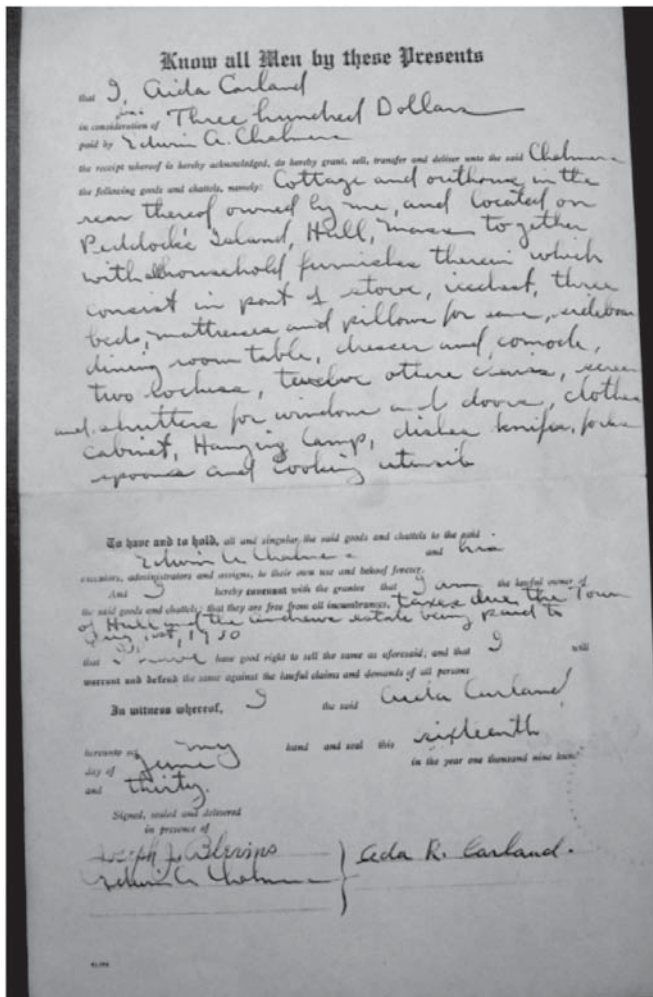 Know all Men by these Presents
that I, Aida Carland
in consideration of Three hundred Dollars
paid by Edwin A. Chalmers
the receipt whereof is hereby acknowledged, do hereby grant, sell, transfer and deliver unto the said Chalmers
the following goods and chattels, namely: Cottage and outhouse in the
rear thereof owned by me, and located on
Peddock's Island, Hull, Mass together
with household furnishes therein which
consist in part of stove, icechest, three
beds, mattresses and pillows for same, sideboard
dining room table, dresser and comode,
two rockers, twelve chairs, screen
and shutters for windows and doors, clothes
cabinet, Hanging lamp, dishes knifes, forks
spoons and cooking utensils
To have and to hold, all and singular the said goods and chattels to the said
Edwin A Chalmers and his
executors, administrators and assigns, to their own use and behoof forever.
And I hereby covenant with the grantee that I am the lawful owner of
the said goods and chattels; that they are free from all incumbrances, taxes due the Town
of Hull and the Andrews estate being paid to
Aug 1st, 1930
that I have good right to sell the same as aforesaid; and that I will
warrant and defend the same against the lawful claims and demands of all persons
In witness whereof, I the said Aida Carland
hereunto set my hand and seal this sixteenth
day of June in the year one thousand nine hund
and thirty.
Signed, sealed and delivered
in presence of
Joseph J. Blevins
Edwin A Chalmers
Ada R. Carland.